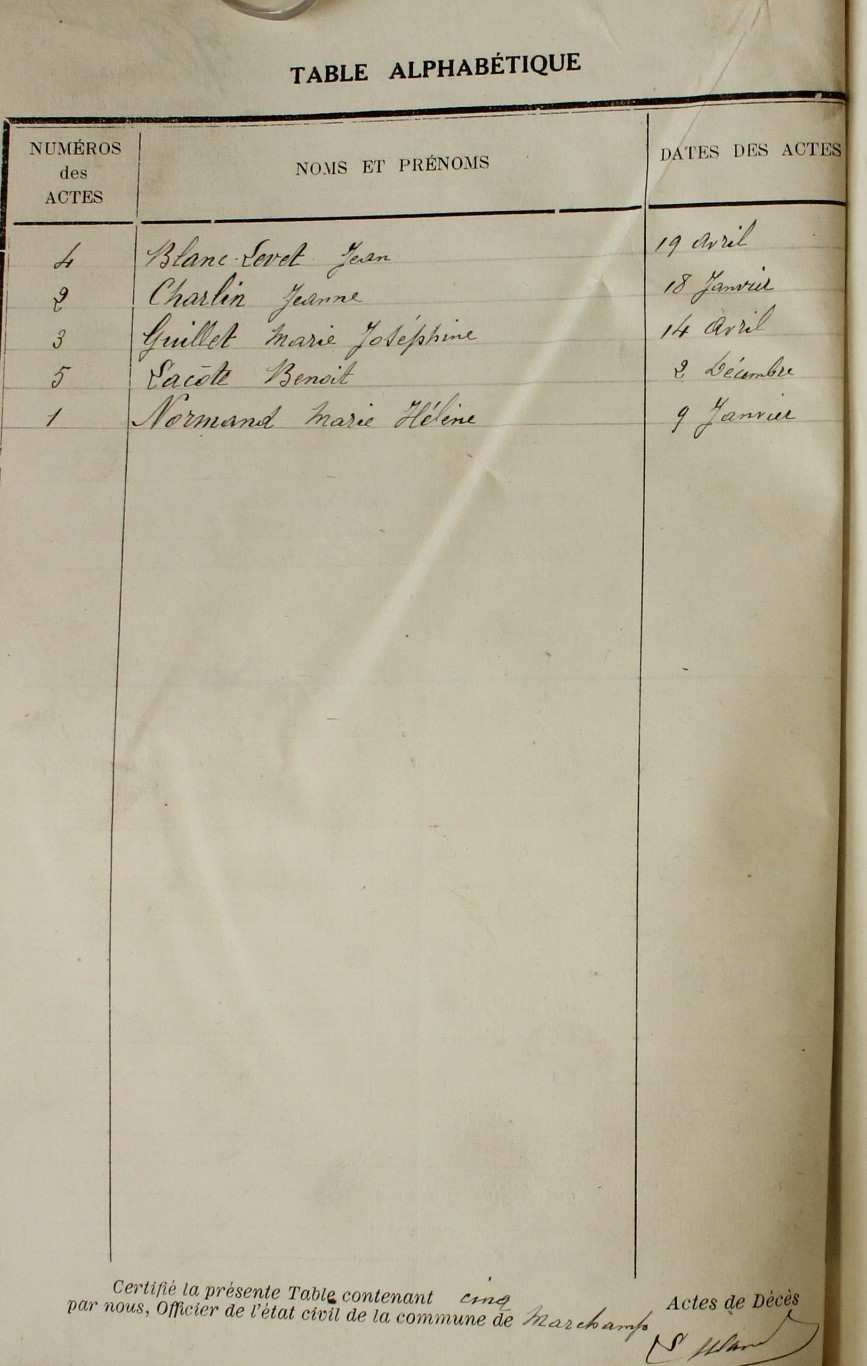 TABLE ALPHABÉTIQUE
NUMÉROS des ACTES NOMS ET PRÉNOMS DATES DES ACTES
4 Blanc-Levet Jean 19 Avril
2 Charlin Jeanne 18 Janvier
3 Guillet Marie Joséphine 14 Avril
5 Lacôte Benoit 2 Décembre
1 Normand Marie Hélène 9 Janvier
Certifié la présente Table contenant cinq Actes de Décès
par nous, Officier de l'état civil de la commune de Marchamp